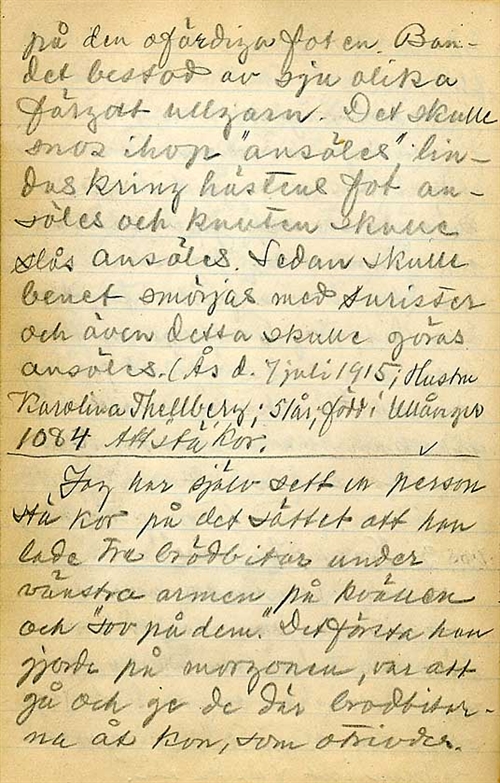 på den ofärdiga foten. Ban-
det bestod av sju olika
färgat ullgarn. Det skulle
snos ihop "ansöles", lin-
das kring hästens fot an-
söles och knuten skulle
slås ansöles. Sedan skulle
benet smörjas med surister
och även detta skulle göras
ansöles. (Ås d. 7 juli 1915; Hustru
Karolina Thellberg; 51 år, född i Ullånger
1084 Att stä kor.
Jag har själv sett en person
stä kor på det sättet att han
lade tre brödbitar under
vänstra armen på kvällen
och "sov på dem." Det första han
gjorde på morgonen, var att
gå och ge de där brödbitar-
na åt kon, som